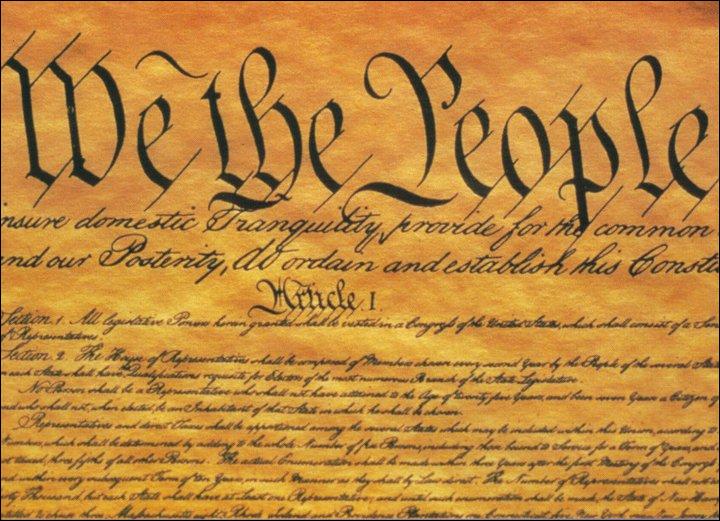 We the People
insure domestic Tranquility, provide for the common
and our Posterity, do ordain and establish this Consti
Article. I.
Section. 1. All legislative Powers herein granted shall be vested in a Congress of the United States, which shall consist of a Sen
of Representatives.
Section. 2. The House of Representatives shall be composed of Members chosen every second Year by the People of the several States
in each State shall have the Qualifications requisite for Electors of the most numerous Branch of the State Legislature.
No Person shall be a Representative who shall not have attained to the Age of twenty five Years, and been seven Years a Citizen of
and who shall not, when elected, be an Inhabitant of that State in which he shall be chosen.
Representatives and direct Taxes shall be apportioned among the several States which may be included within this Union, according to
Numbers, which shall be determined by adding to the whole Number of free Persons, including those bound to Service for a Term of Years, and
not taxed, three fifths of all other Persons. The actual Enumeration shall be made within three Years after the first Meeting of the Congress
and within every subsequent Term of ten Years, in such Manner as they shall by Law direct. The Number of Representatives shall not
thirty Thousand, but each State shall have at Least one Representative; and until such enumeration shall be made, the State of New Ham
Massachusetts Rhode Island and Providence Plantations